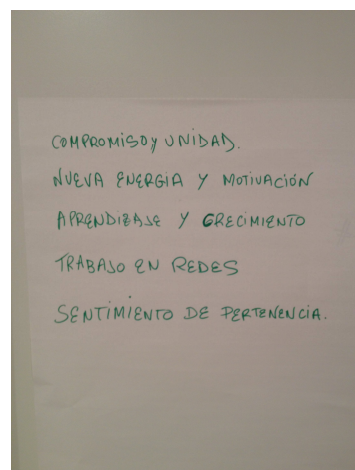 COMPROMISO y UNIDAD.
NUEVA ENERGIA Y MOTIVACIÓN
APRENDIZAJE Y CRECIMIENTO
TRABAJO EN REDES
SENTIMIENTO DE PERTENENCIA.